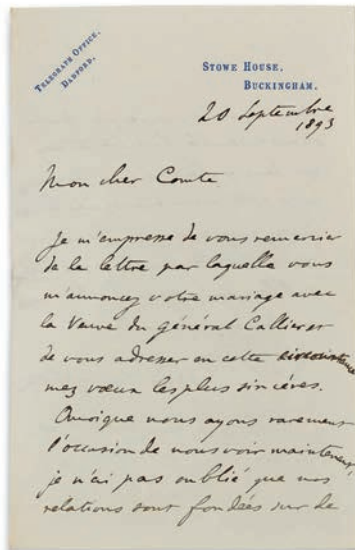 TELEGRAPH OFFICE,
DADFORD.
STOWE HOUSE,
BUCKINGHAM.
20 Septembre
1893
Mon cher Comte
Je m'empresse de vous remercier
de la lettre par laquelle vous
m'annoncez votre mariage avec
la Veuve du général Callier et
de vous adresser en cette circonstance
mez vœux les plus sincères.
Quoique nous ayons rarement
l'occasion de nous voir maintenant,
je n'ai pas oublié que nos
relations sont fondées sur de